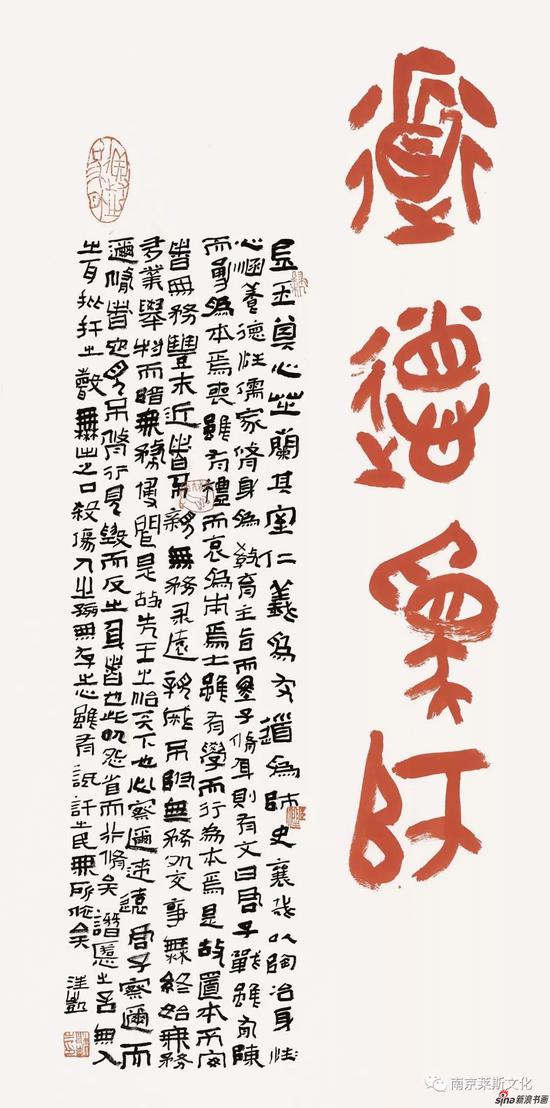 道德為師
玉其心芷蘭其室仁義為友道為師史襄哉以陶冶身性
心涵養德性儒家修身為教育主旨而墨子修身則有文曰君子戰雖有陳
而勇為本焉喪雖有禮而哀為本焉士雖有學而行為本焉是故置本不安
者無務豐末近者不親無務來遠親戚不附無務外交事無終始無務
多業舉物而暗無務博聞是故先王之治天下也必察邇來遠君子察邇而
邇修者也見不修行見毀而反之身者也此以怨省而行修矣譖慝之言無入
之耳批扞之聲無出之口殺傷人之孩無存心雖有詆訐之民無所依矣
南京莱斯文化
sina新浪书画